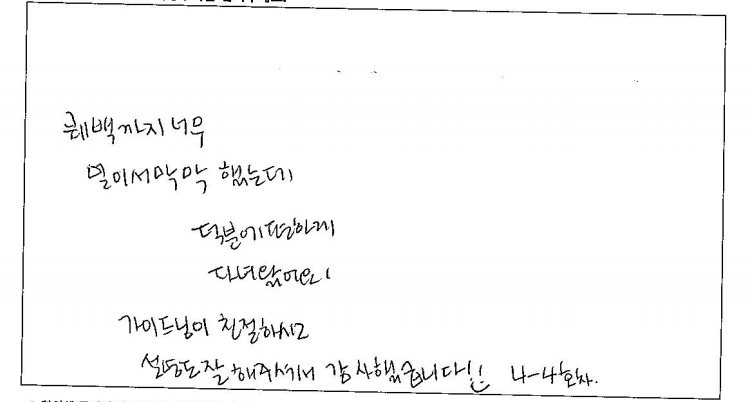 태백까지 너무
멀어서 막막 했는데
덕분에 편하게
다녀왔어요!
가이드님이 친절하시고
설명도 잘 해주셔서 감사했습니다!! 4-4호차.